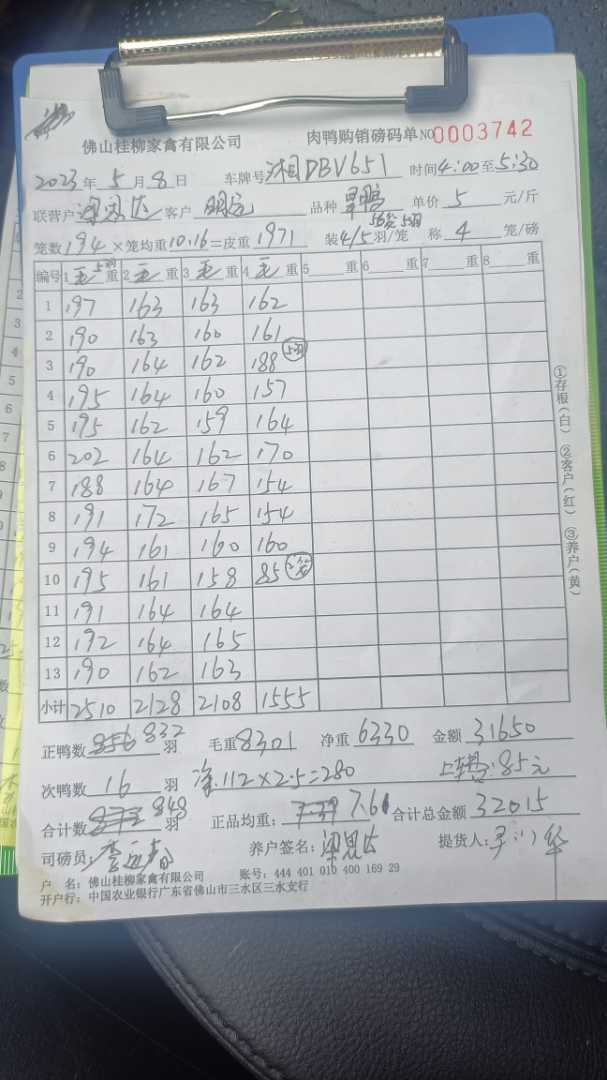 佛山桂柳家禽有限公司 肉鸭购销磅码单 NO 0003742
2023年 5月 8日 车牌号 湘DBV651 时间 4:00至5:30
联营户 客户 品种 单价 5 元/斤
56笼 5羽
笼数 194 ×笼均重 10.16=皮重 1971 装 4/5 羽/笼 称 4 笼/磅
编号 1 毛 5羽 重 2 毛 重 3 毛 重 4 毛 重 5 重 6 重 7 重 8 重
1 197 163 163 162
2 190 163 160 161
3 190 164 162 188 5羽
4 195 164 160 157
5 195 162 159 164
6 202 164 162 170
7 188 164 167 154
8 191 172 165 154
9 194 161 160 160
10 195 161 158 85 2笼
11 191 164 164
12 192 164 165
13 190 162 163
小计 2510 2128 2108 1555
正鸭数 856 832 羽 毛重 8301 净重 6330 金额 31650
次鸭数 16 羽 净:112×2.5=280 85元
合计数 872 848 羽 正品均重: 7.61 合计总金额 32015
司磅员: 养户签名: 梁恩达 提货人:
户 名: 佛山桂柳家禽有限公司 账号: 444 401 010 400 169 29
开户行: 中国农业银行广东省佛山市三水区三水支行
①存根(白) ②客户(红) ③养户(黄)